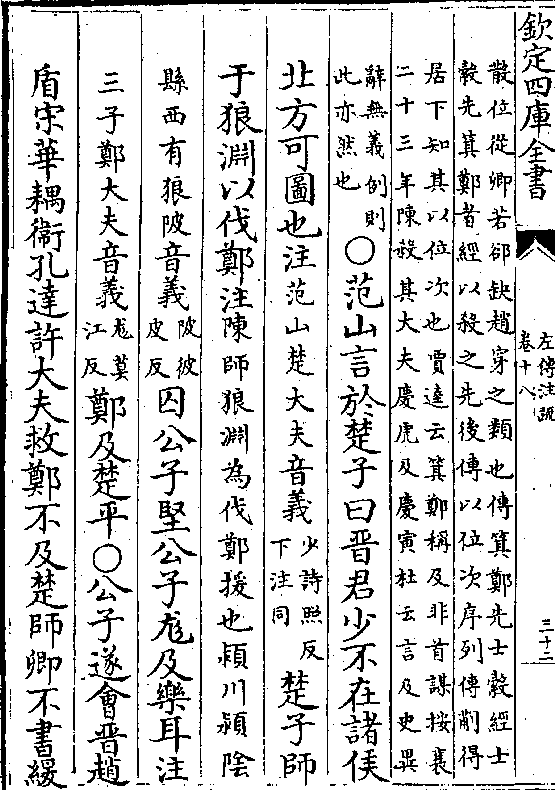 欽定四庫全書
左傳注疏
卷十八
三十二
散位從卿若郤缺趙穿之類也傳箕鄭先士縠經士
縠先箕鄭者經以殺之先後傳以位次序列傳蒯得
居下知其以位次也賈逵云箕鄭稱及非首謀按襄
二十三年陳殺其大夫慶虎及慶寅杜云言及史異
辭無義例則
此亦然也
○范山言於楚子曰晉君少不在諸侯
北方可圖也注范山楚大夫音義
少詩照反
下注同
楚子師
于狼淵以伐鄭注陳師狼淵為伐鄭援也潁川潁陰
縣西有狼陂音義
陂彼
皮反
囚公子堅公子尨及樂耳注
三子鄭大夫音義
尨莫
江反
鄭及楚平○公子遂會晉趙
盾宋華耦衞孔達許大夫救鄭不及楚師卿不書緩